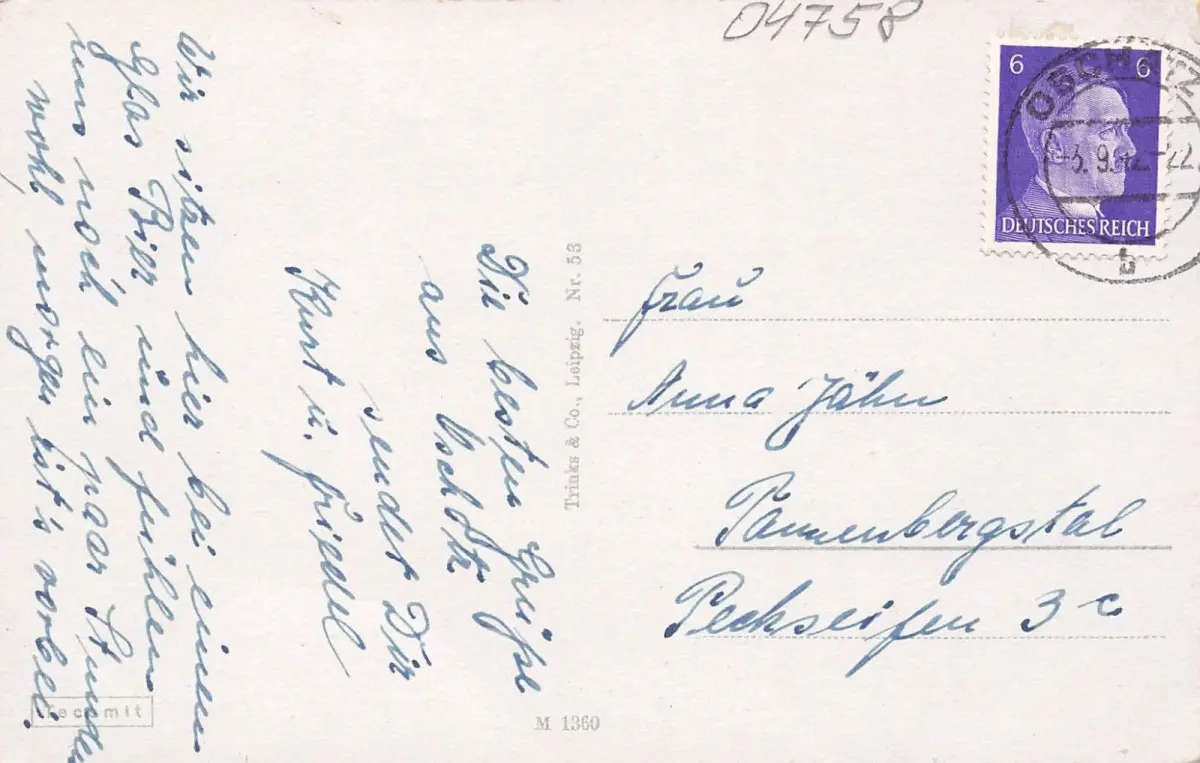 04758
6 6
DEUTSCHES REICH
OSCHATZ
-3.9.42-22
b
Die besten Grüße
aus Oschatz
sendet Dir
Kurt u. Friedel
Wir sitzen hier bei einem
Glas Bier und fühlen
uns noch ein paar Stunden
wohl, morgen ist's vorbei.
Trinks & Co., Leipzig. Nr. 53
Frau
Anna Jähn
Tannenbergstal
Pechseifen 3c
Tecomit
M 1360